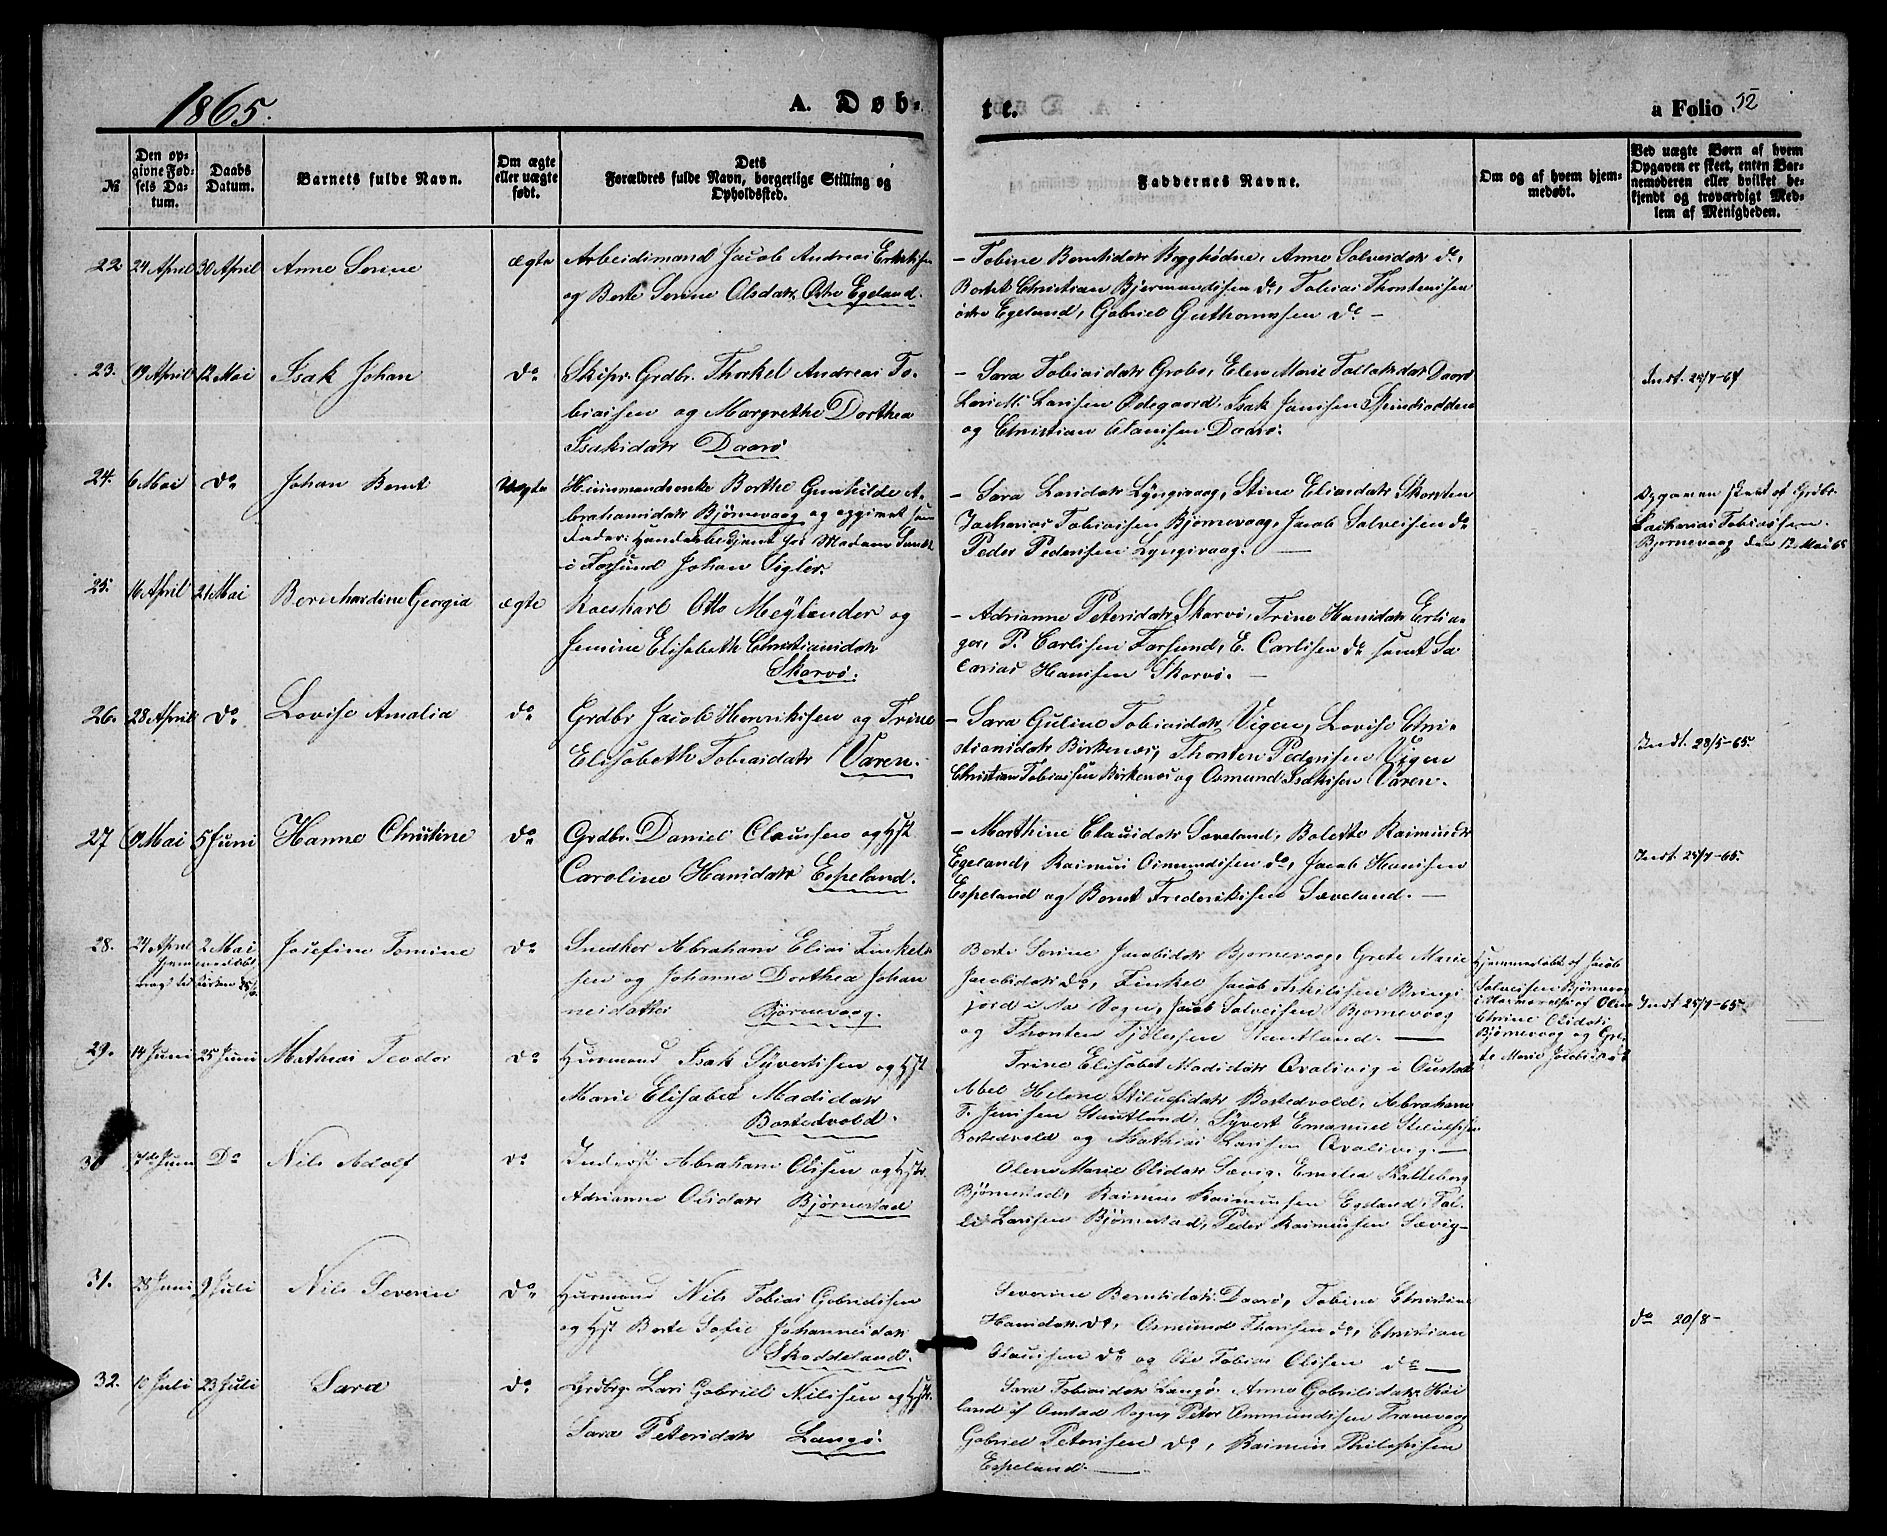 1865.
A. Døb-
te.
a Folio 52
№
Den op-
givne Fød-
sels Da-
tum.
Daabs
Datum.
Barnets fulde Navn.
Om ægte
eller uægte
født.
Dets
Forældres fulde Navn, borgerlige Stilling og
Opholdssted.
Faddernes Navne.
Om og af hvem hjem-
medøbt.
Ved uægte Børn af hvem
Opgaven er skeet, enten Bar-
nemoderen eller hvilket be-
kjendt og troværdigt Med-
lem af Menigheden.
22 24 April 30 April Anne Serine ægte Arbeidsmand Jacob Andreas
og Berte Serine Olsdatr. Østre Egeland.
- Tobine Berntsdatr Anne Salvesdatr do,
Beret Christian do, Tobias Thorstensen
østre Egeland, Gabriel Guthormsen do -
23. 19 April 12 Mai Isak Johan do Skipr. Grdbr. Thorkel Andreas To-
biassen og Margrethe Dorthea
Isaksdatr Daarø
- Sara Tobiasdatr Elen Marie Daarø
Larssen Ødegaard, Isak Janssen
og Christian Claussen Daarø.
Indt. 24/7-67
24. 6 Mai do Johan Bernt Uægte Huusmandsenke Berthe Gunhilde A-
brahamsdatr Bjørnevaag og opgivet som
Fader: Handelsbetjent for Madam
i Farsund Johan Sigler.
- Sara Larsdatr Lyngsvaag, Stine Eliasdatr
Zacharias Tobiassen Bjørnevaag, Jacob Salvesen do
Peder Pedersen Lyngsvaag. -
Opgaven skeet af Grdbr.
Zacharias Tobiassen
Bjørnevaag den 12 Mai 65
25. 16 April 21 Mai Bernhardine Georgia ægte Otto Meylænder og
Jemine Elisabeth Christiansdatr
Skarvø.
- Adrianne Petersdatr Skarvø, Trine Hansdatr
P. Carlsen Farsund, E. Carlsen do samt Sa
carias Hansen Skarvø. -
26. 28 April do Lovise Amalia do Grdbr Jacob Henriksen og Trine
Elisabeth Tobiasdatr Varen.
- Sara Guline Tobiasdatr Vigen, Lovise Chri-
stiansdatr Birkenæs, Thorsten Pedersen Vigen
Christian Tobiassen Birkenæs og Osmund Isaksen Varen.
Indt. 28/5-65.
27 9 Mai 5 Juni Hanne Christine do Grdbr. Daniel Claussen og Hst
Caroline Hansdatr Espeland.
- Marthine Clausdatr Sæveland, Bolette Rasmusdr
Egeland, Rasmus Osmundsen do, Jacob Hansen
Espeland og Bernt Frederiksen Sæveland. -
Indt 25/7-65.
28. 27 April 2 Mai Josefine Tomine do Snedker Abraham Elias Finkel-
sen og Johanne Dorthea Johan
nesdatter Bjørnevaag.
Berte Serine Jacobsdatr Bjørnevaag, Grete Marie
Jacobsdatr do, Finkel Jacob Askilsen Brings
jord i Aa Sogn, Jacob Salvesen Bjørnevaag
og Thorsten -
Hjemmedøbt af Jacob
Salvesen Bjørnevaag
i Nærværelse af Olene
Olsdatr
Bjørnevaag og Gre-
te Marie Jacobsdatr
Indt 25/7-65
29. 14 Juni 25 Juni Mathias Teodor do Husmand Isak Syvertsen og Hst
Marie Elisabet Madsdatr
Bastedvold.
Trine Elisabet Madsdatr Qvalsvig i Oustad
Abel Helene Bastedvold, Abraham
T. Jenssen Syvert Emanuel
Bastedvold og Mathias Larsen Qvalsvig. -
30 Juni Do Nils Adolf do Inderst Abraham Olsen og Hst.
Adrianne Olsdatr Bjørnestad
Olene Marie Olsdatr Sævig. Emilia Kalleberg
Bjørnestad, Rasmus Rasmussen Egeland, Tal-
lė Larsen Bjørnestad, Peder Rasmussen Sævig-
31. 28 Juni 9 Juli Nils Severin do Husmand Nils Tobias Gabrielsen
og Hst Berte Sofie Johannesdatr
Skoddeland.
Severine Berntsdatr Daarø, Tobine Christine
Hansdatr do, Osmund do, Christian
Claussen do og Ole Tobias Olsen do -
do 20/8-
32. 10 Juli 23 Juli Sara do Grdbrg. Lars Gabriel Nilssen og Hst.
Sara Petersdatr Langø.
Sara Tobiasdatr Langø. Anne Gabrielsdatr Høi
land af Oustad Sogn, Peter Ommundsen Tranevaag
Gabriel Petersen do, Rasmus Philipsen
Espeland. -